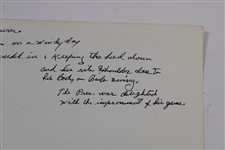 on a windy day
in : Keeping the head down
and his rite shoulder close to
his body on Back swing.
The Pres. was delighted
with the improvement of his game